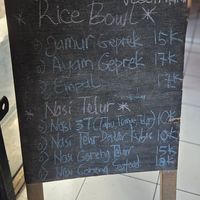 * Rice Bowl *
Jamur Geprek 15K
Ayam Geprek 17K
Empal 17K
* Nasi Telur *
Nasi 3T (Tahu, Tempe, Telur) 10K
Nasi Telur Dadar 10K
Nasi Goreng Telur 15K
Nasi Goreng Seafood 18K